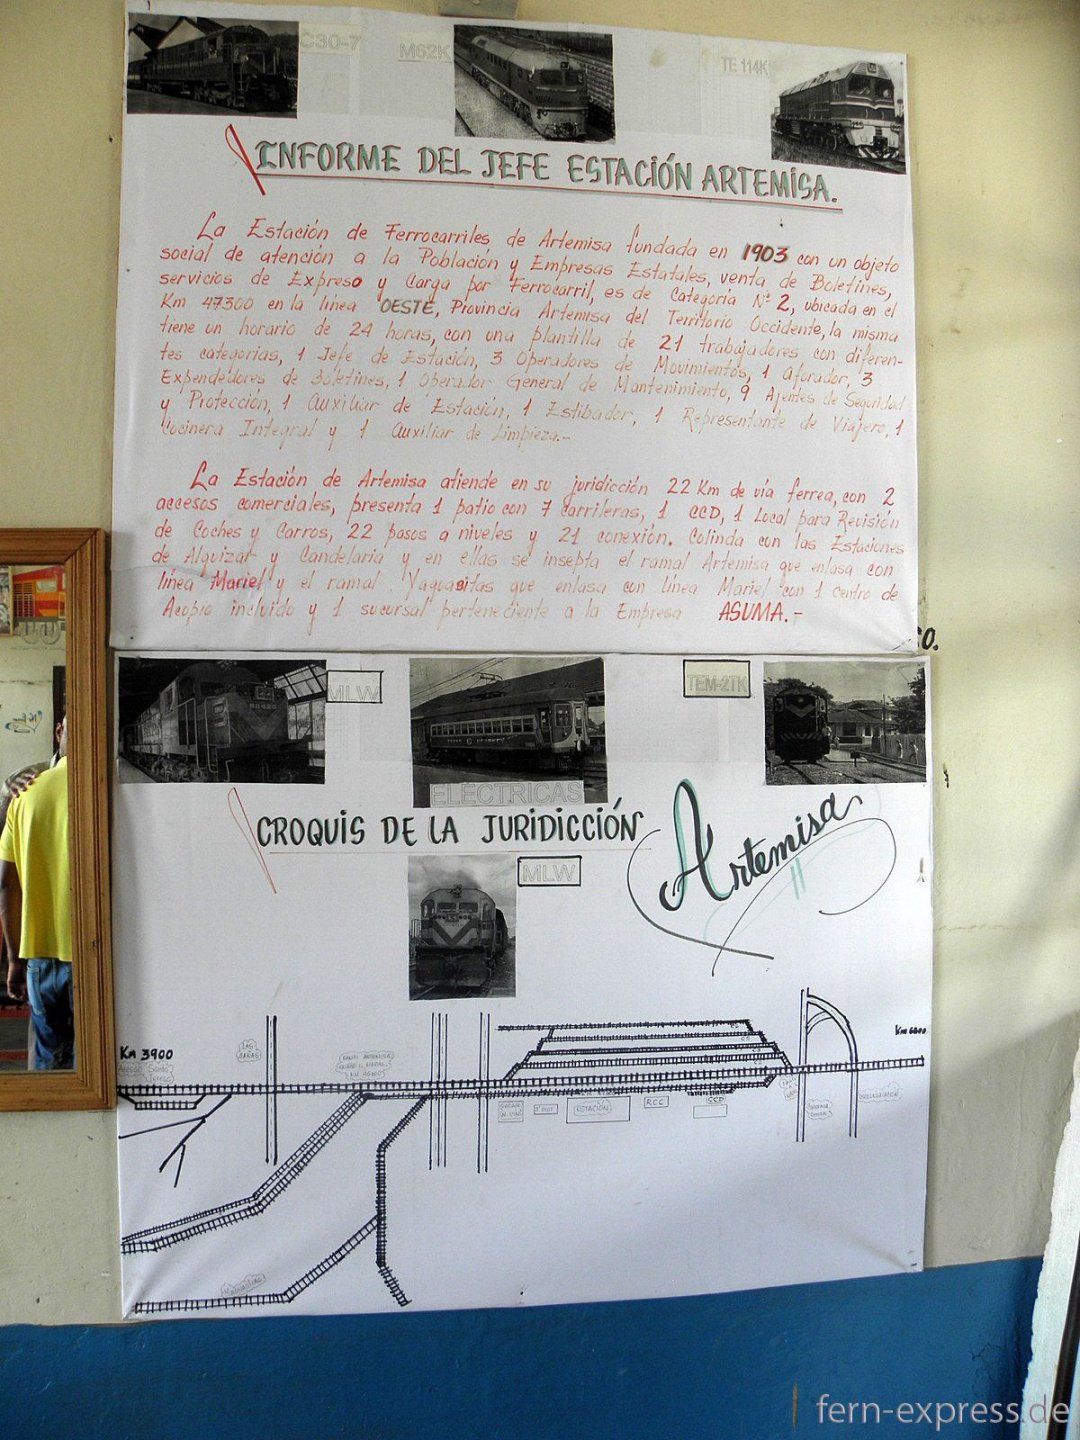 C30-7
M62K
TE 114K
INFORME DEL JEFE ESTACIÓN ARTEMISA.
La Estación de Ferrocarriles de Artemisa fundada en 1903 con un objeto
social de atención a la Población y Empresas Estatales, venta de Boletines,
servicios de Expreso y Carga por Ferrocarril, es de Categoría Nº 2, ubicada en el
Km 47300 en la línea OESTE, Provincia Artemisa del Territorio Occidente, la misma
tiene un horario de 24 horas, con una plantilla de 21 trabajadores, con diferen-
tes categorias, 1 Jefe de Estación, 3 Operadores de Movimientos, 1 Aforador, 3
Expendedores de Boletines, 1 Operador General de Mantenimiento, 9 Agentes de Seguridad
y Protección, 1 Auxiliar de Estación, 1 Estibador, 1 Representante de Viajero, 1
Cocinera Integral y 1 Auxiliar de Limpieza.-
La Estación de Artemisa atiende en su juridicción 22 Km de vía ferrea, con 2
accesos comerciales, presenta 1 patio con 7 carrileras, 1 CCD, 1 Local para Revisión
de Coches y Carros, 22 pasos a niveles y 21 conexión. Colinda con las Estaciones
de Alquizar y Candelaria y en ellas se insebta el ramal Artemisa que enlasa con
línea Mariel y el ramal Yaguasitas que enlasa con línea Mariel con 1 centro de
Acopio incluido y 1 sucursal perteneciente a la Empresa ASUMA.-
O.
MLW
ELÉCTRICAS
TEM-2TK
CROQUIS DE LA JURIDICCIÓN
Artemisa
MLW
Km 3900
LAS CAÑAS
RAMAL ARTEMISA
ESTACIÓN
RCC
CCD
fern-express.de